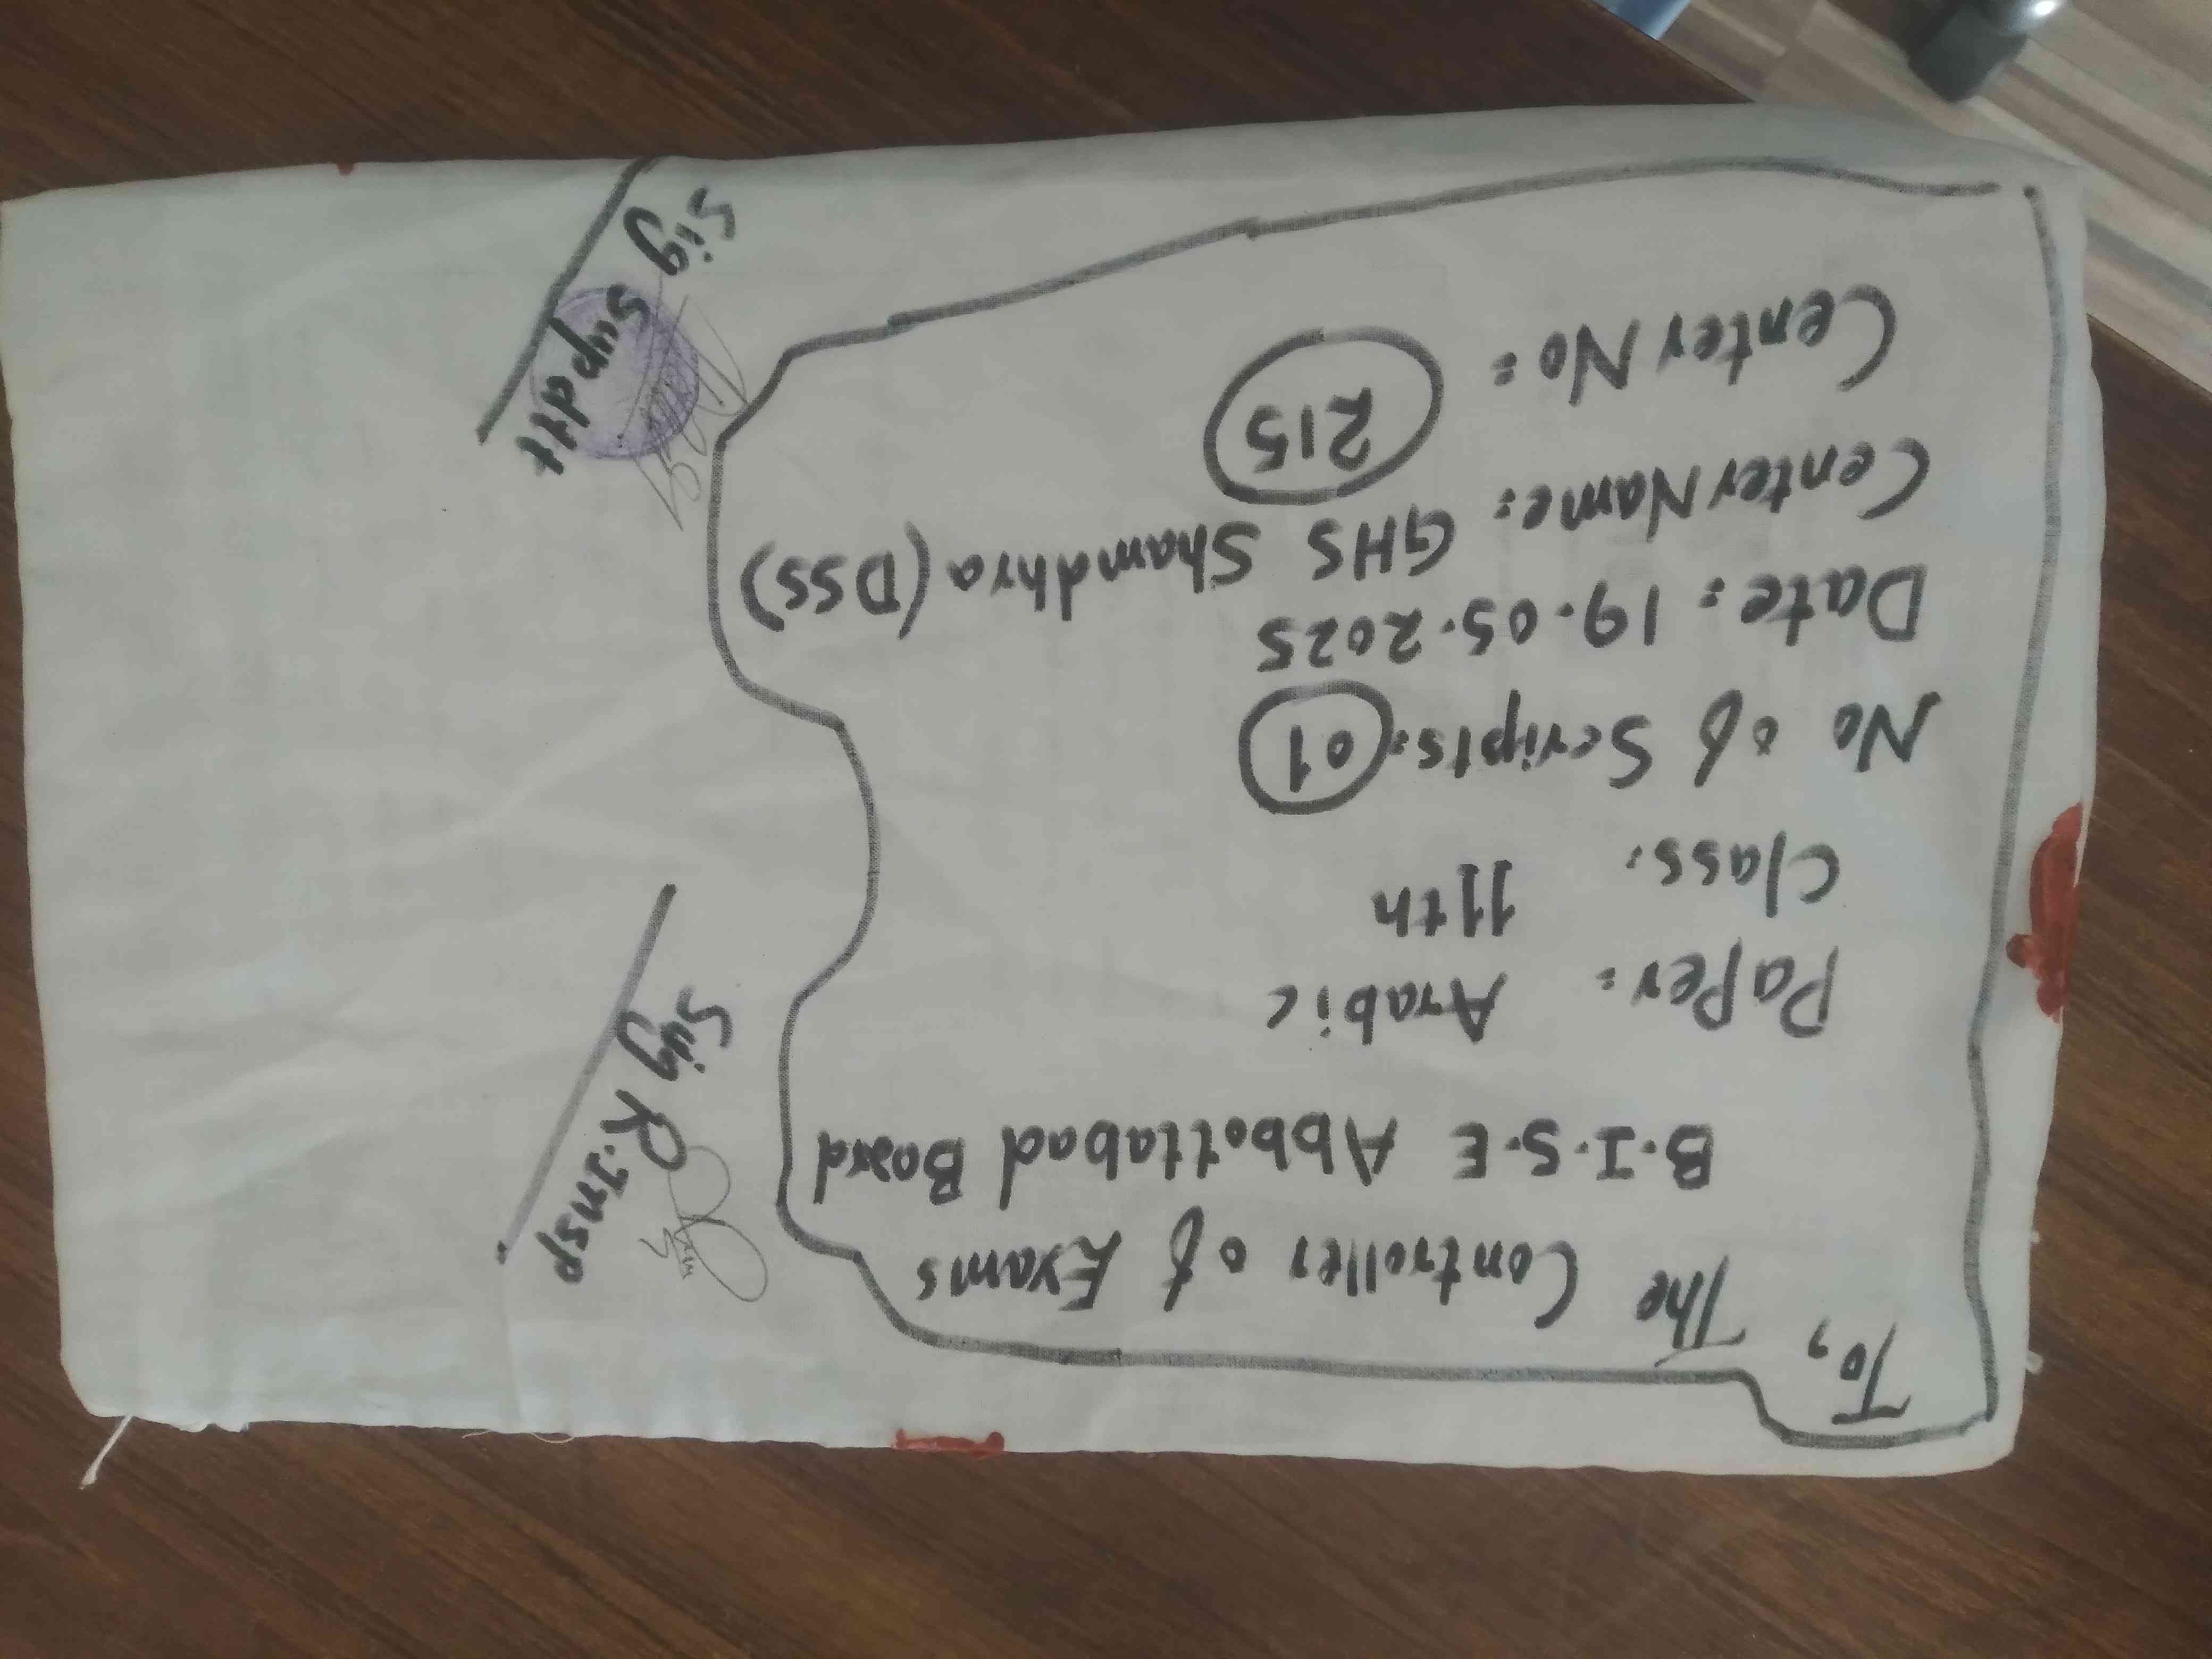 To,
The Controller of Exams
B.I.S.E Abbottabad Board
Paper: Arabic
Class: 11th
No of Scripts: 01
Date: 19.05.2025
Center Name: GHS Shamdhra (DSS)
Center No: 215
Sig R.Insp
Sig Supdtt